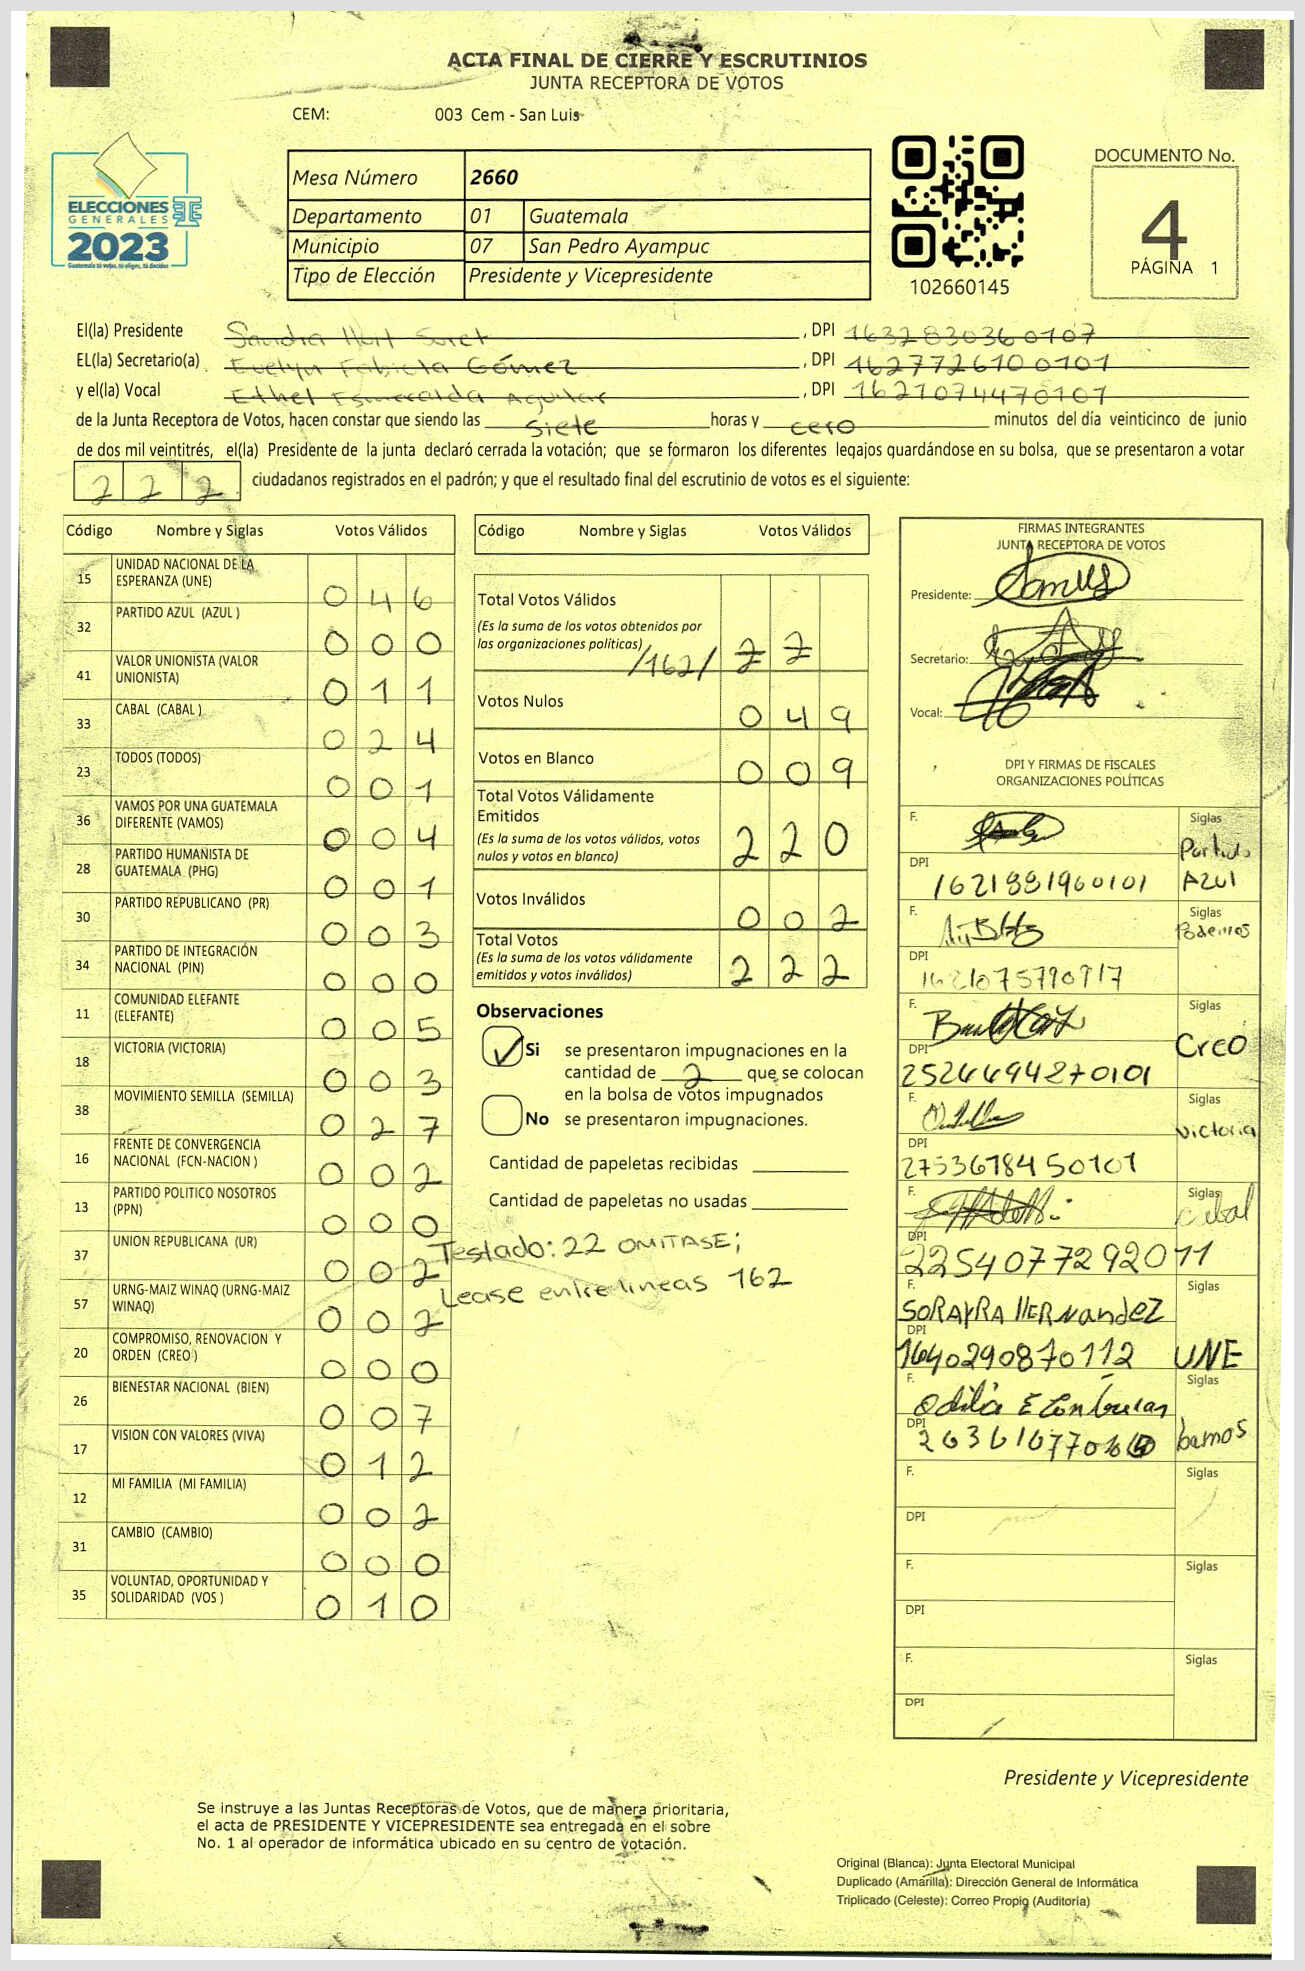 ACTA FINAL DE CIERRE Y ESCRUTINIOS
JUNTA RECEPTORA DE VOTOS
CEM: 003 Cem - San Luis
ELECCIONES
GENERALES
2023
Mesa Número 2660
Departamento 01 Guatemala
Municipio 07 San Pedro Ayampuc
Tipo de Elección Presidente y Vicepresidente
102660145
DOCUMENTO No.
4
PÁGINA 1
El(la) Presidente Sandra , DPI 1632830360107
EL(la) Secretario(a) Evelyn Fabiola Gómez , DPI 1627726100101
y el(la) Vocal Ethel Esmeralda Aguilar , DPI 1621074470101
de la Junta Receptora de Votos, hacen constar que siendo las siete horas y cero minutos del día veinticinco de junio
de dos mil veintitrés, el(la) Presidente de la junta declaró cerrada la votación; que se formaron los diferentes legajos guardándose en su bolsa, que se presentaron a votar
2 2 2 ciudadanos registrados en el padrón; y que el resultado final del escrutinio de votos es el siguiente:
Código Nombre y Siglas Votos Válidos
15 UNIDAD NACIONAL DE LA
ESPERANZA (UNE) 0 4 6
32 PARTIDO AZUL (AZUL ) 0 0 0
41 VALOR UNIONISTA (VALOR
UNIONISTA) 0 1 1
33 CABAL (CABAL ) 0 2 4
23 TODOS (TODOS) 0 0 1
36 VAMOS POR UNA GUATEMALA
DIFERENTE (VAMOS) 0 0 4
28 PARTIDO HUMANISTA DE
GUATEMALA (PHG) 0 0 1
30 PARTIDO REPUBLICANO (PR) 0 0 3
34 PARTIDO DE INTEGRACIÓN
NACIONAL (PIN) 0 0 0
11 COMUNIDAD ELEFANTE
(ELEFANTE) 0 0 5
18 VICTORIA (VICTORIA) 0 0 3
38 MOVIMIENTO SEMILLA (SEMILLA) 0 2 7
16 FRENTE DE CONVERGENCIA
NACIONAL (FCN-NACION ) 0 0 2
13 PARTIDO POLITICO NOSOTROS
(PPN) 0 0 0
37 UNION REPUBLICANA (UR) 0 0 2
57 URNG-MAIZ WINAQ (URNG-MAIZ
WINAQ) 0 0 2
20 COMPROMISO, RENOVACION Y
ORDEN (CREO ) 0 0 0
26 BIENESTAR NACIONAL (BIEN) 0 0 7
17 VISION CON VALORES (VIVA) 0 1 2
12 MI FAMILIA (MI FAMILIA) 0 0 2
31 CAMBIO (CAMBIO) 0 0 0
35 VOLUNTAD, OPORTUNIDAD Y
SOLIDARIDAD (VOS ) 0 1 0
Código Nombre y Siglas Votos Válidos
Total Votos Válidos
(Es la suma de los votos obtenidos por
las organizaciones políticas) /162/ 2 2
Votos Nulos 0 4 9
Votos en Blanco 0 0 9
Total Votos Válidamente
Emitidos
(Es la suma de los votos válidos, votos
nulos y votos en blanco) 2 2 0
Votos Inválidos 0 0 2
Total Votos
(Es la suma de los votos válidamente
emitidos y votos inválidos) 2 2 2
Observaciones
Si se presentaron impugnaciones en la
cantidad de 2 que se colocan
en la bolsa de votos impugnados
No se presentaron impugnaciones.
Cantidad de papeletas recibidas
Cantidad de papeletas no usadas
Testado: 22 OMITASE;
Lease entre lineas 162
FIRMAS INTEGRANTES
JUNTA RECEPTORA DE VOTOS
Presidente:
Secretario:
Vocal:
DPI Y FIRMAS DE FISCALES
ORGANIZACIONES POLÍTICAS
F. Siglas
Partido
Azul
DPI 1621881960101
F. Siglas
Podemos
DPI
F. Siglas
Creo
DPI 2526694270101
F. Siglas
Victoria
DPI 2753678450101
F. Siglas
Cabal
DPI 2254077292011
F. SORAYRA HERNandEZ Siglas
DPI 1640290870112 UNE
F. Odilia E Contreras Siglas
bamos
DPI
F. Siglas
DPI
F. Siglas
DPI
F. Siglas
DPI
Presidente y Vicepresidente
Se instruye a las Juntas Receptoras de Votos, que de manera prioritaria,
el acta de PRESIDENTE Y VICEPRESIDENTE sea entregada en el sobre
No. 1 al operador de informática ubicado en su centro de votación.
Original (Blanca): Junta Electoral Municipal
Duplicado (Amarilla): Dirección General de Informática
Triplicado (Celeste): Correo Propio (Auditoría)